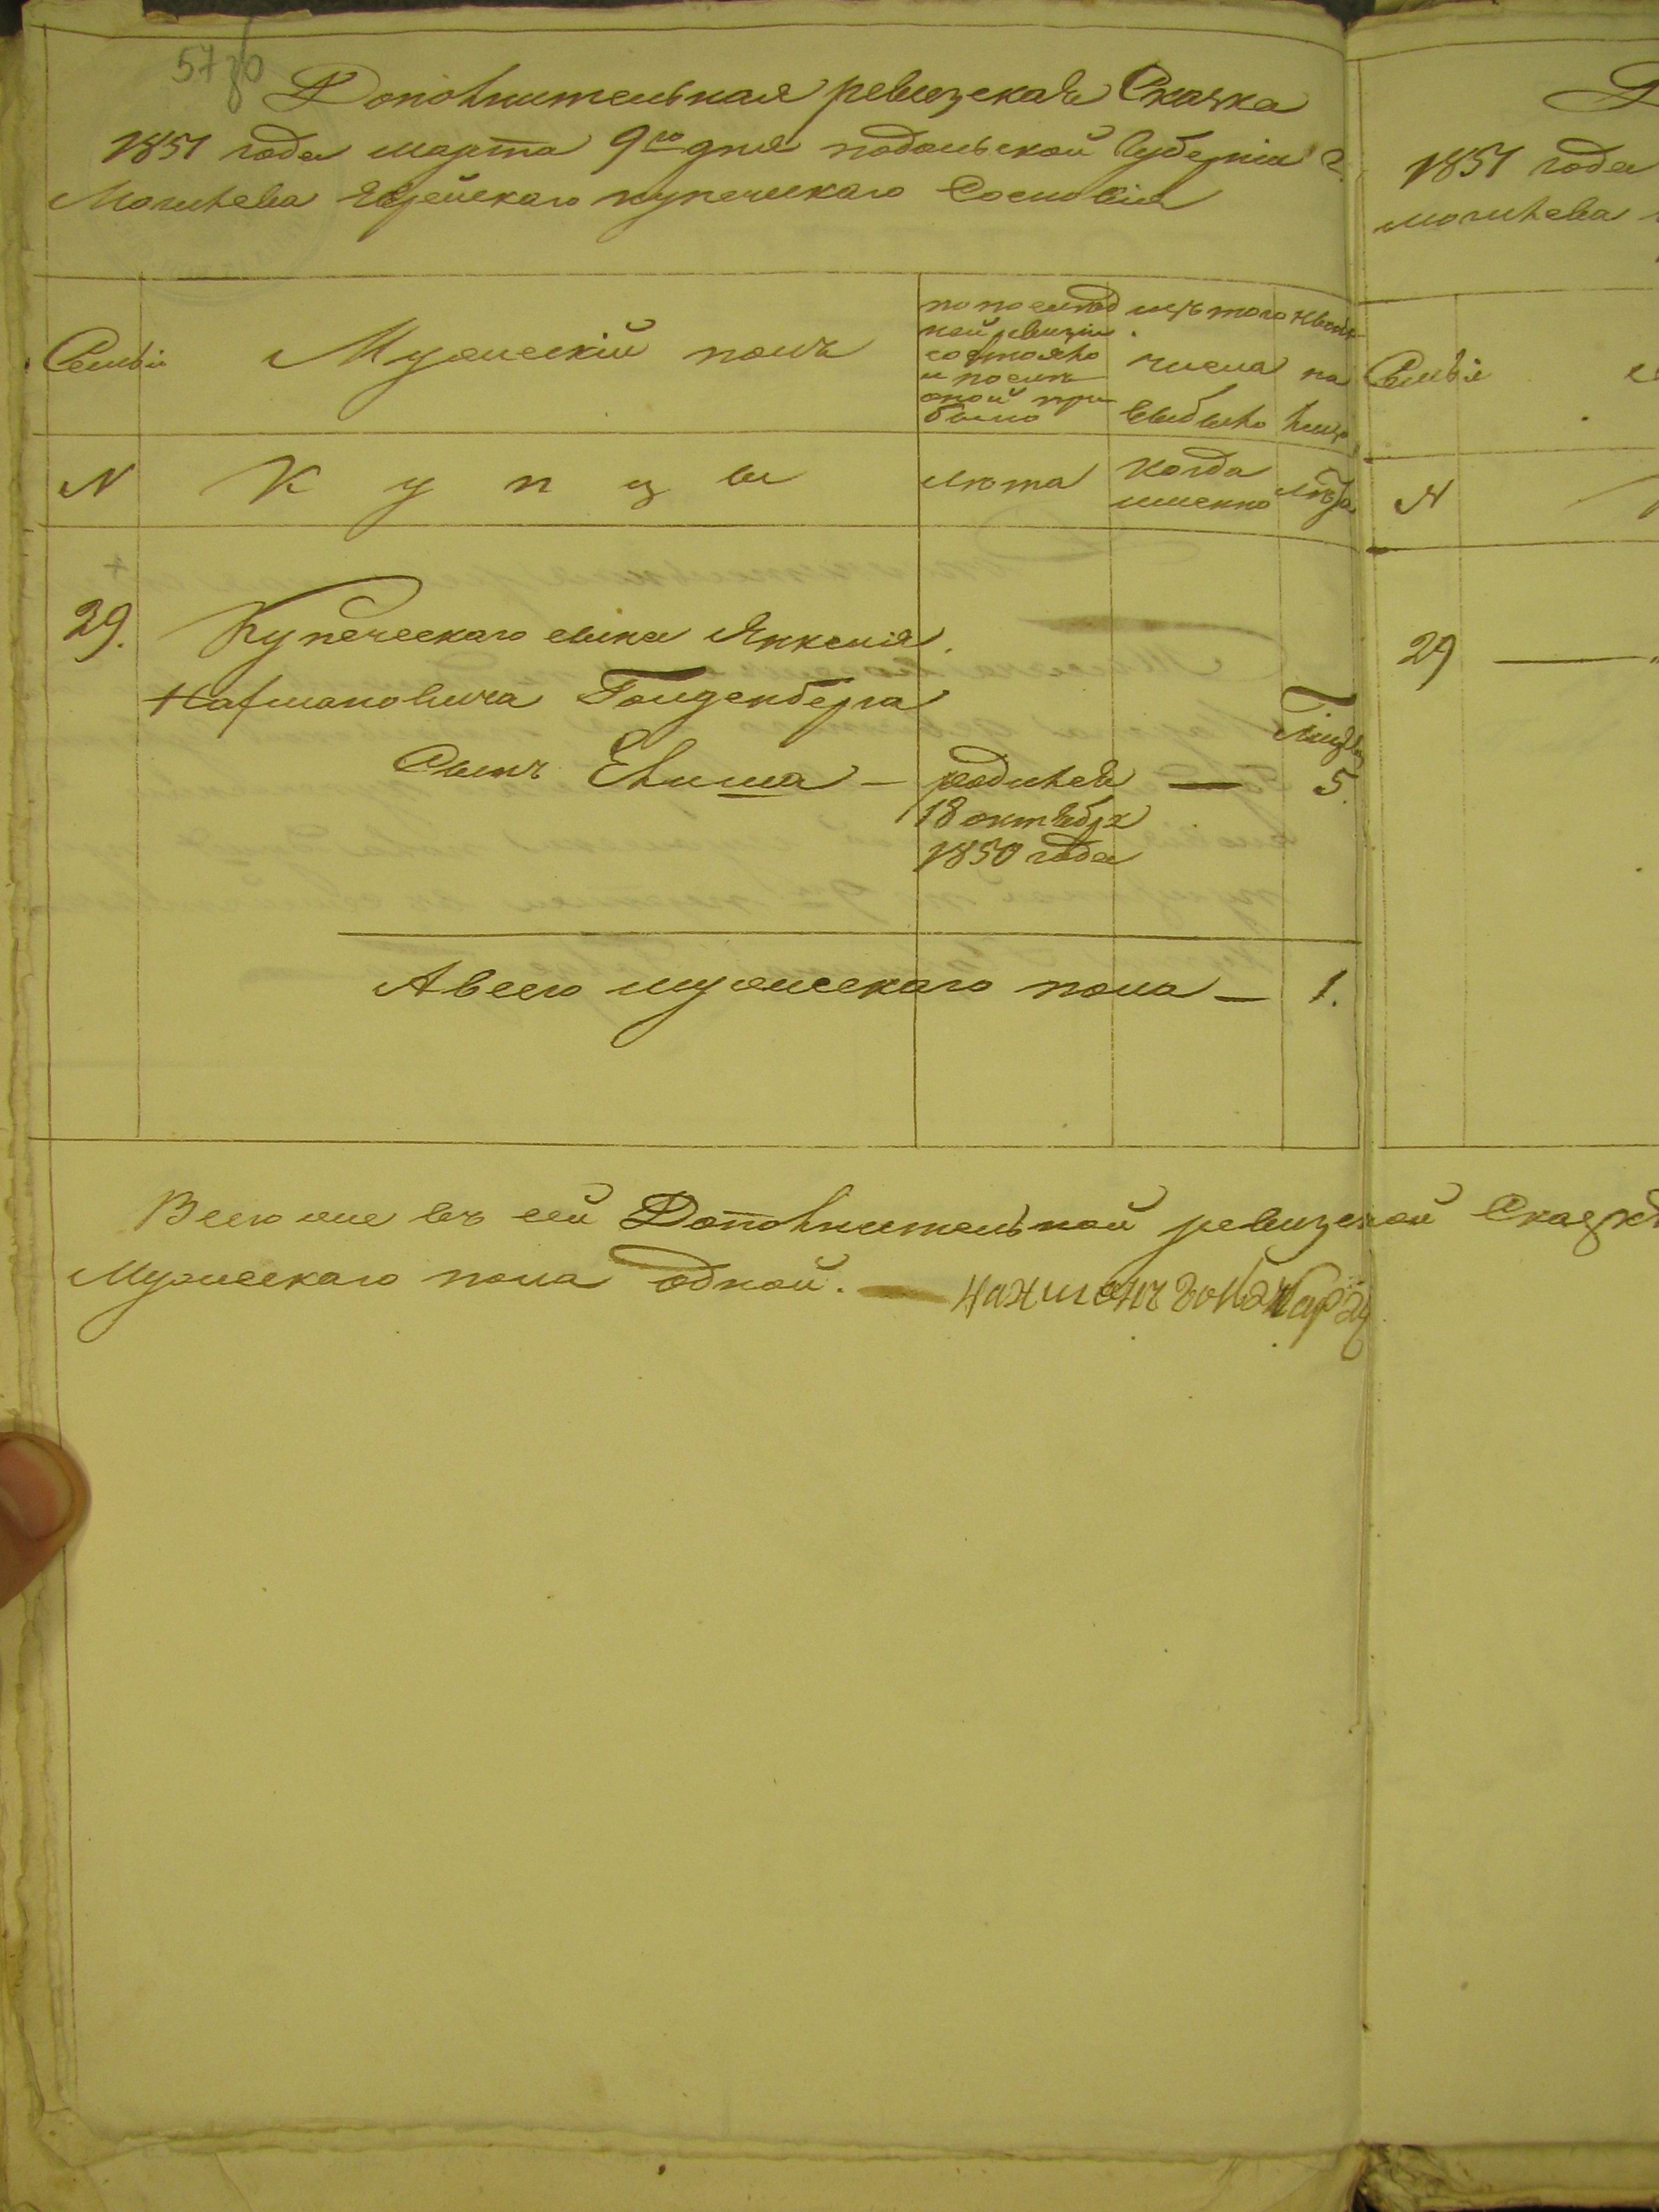 5780
Дополнительная ревизская Сказка
1851 года марта 9го дня подольской Губернии г.
Могилева Еврейскаго купеческаго Сословія
Семьи
Мужескій полъ
по послѣд
ней ревизіи
состояло
и послѣ
оной при
было
изъ того
числа
выбыло
нынѣ
на
лицо
N
Купцы
лѣта
когда
именно
лѣта
29.
Купеческаго сына Янкеля
Нахмановича Гольденберга
Сынъ Елиша — родился — 5.
18 октября
1850 года
А всего мужескаго пола — 1.
Всего же въ сей Дополнительной ревизской Сказкѣ
Мужескаго пола одной. —
Нахманъ
1851 года
могилева
Семья
N
29 —